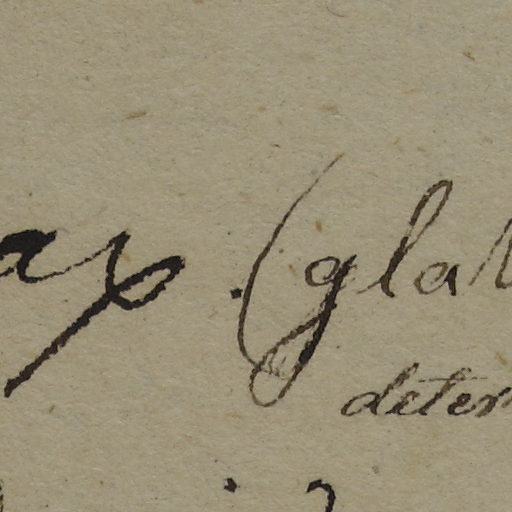 ax. (glab
deter